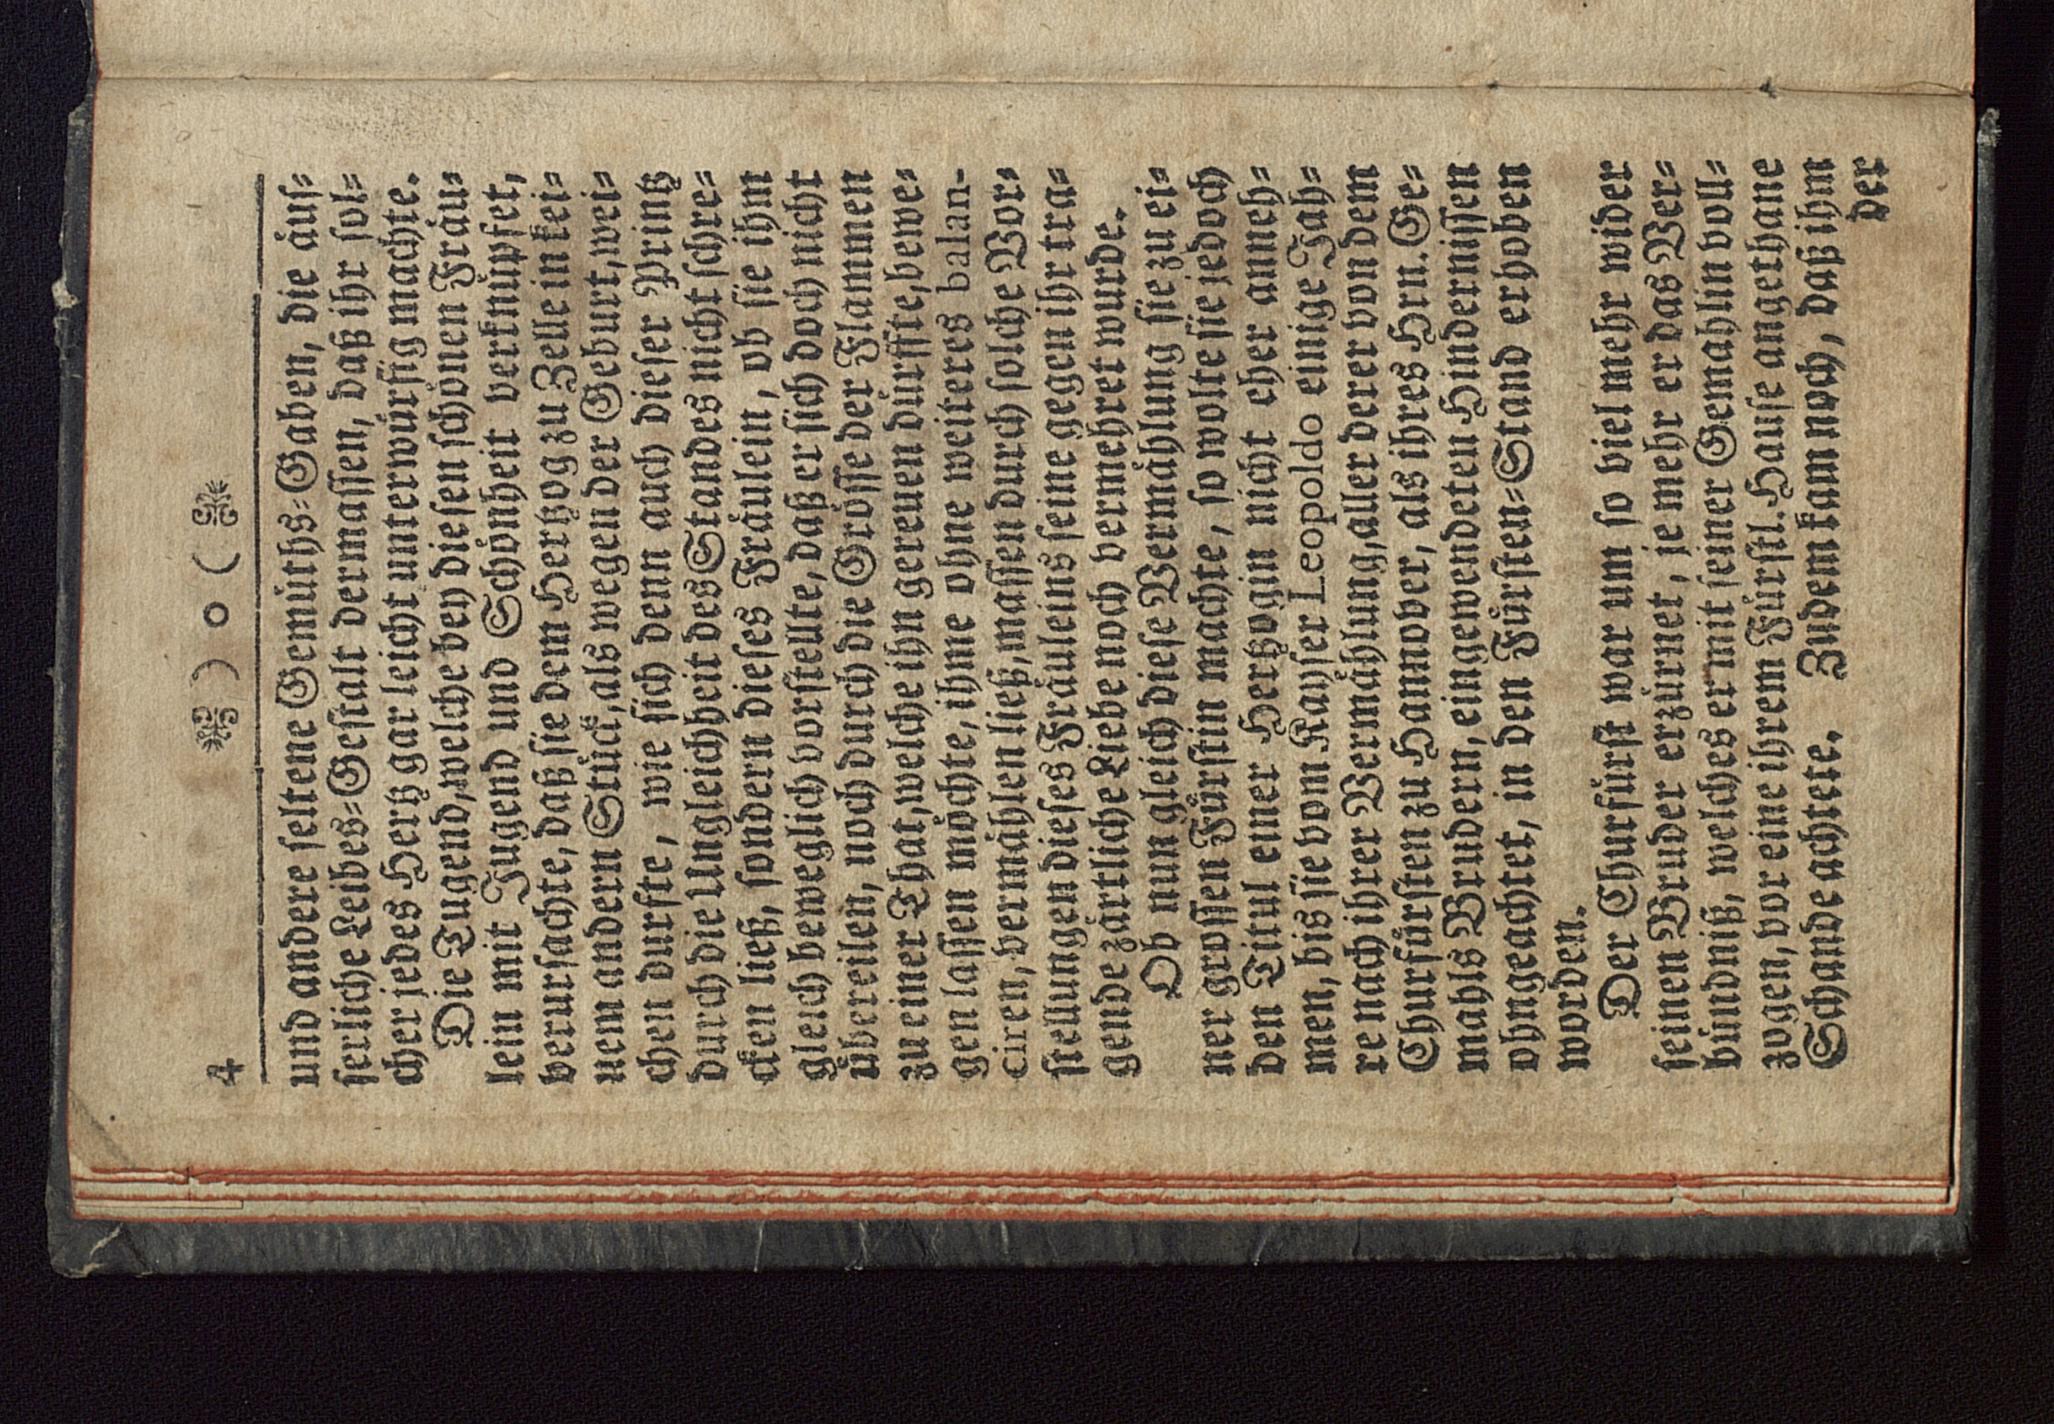 4 ) o (
und andere seltene Gemüths-Gaben, die äus-
serliche Leibes-Gestalt dermassen, daß ihr sol-
cher jedes Hertz gar leicht unterwürfig machte.
Die Tugend, welche bey diesen schönen Fräu-
lein mit Jugend und Schönheit verknüpfet,
verursachte, daß sie dem Hertzog zu Zelle in kei-
nem andern Stück, als wegen der Geburt, wei-
chen durfte, wie sich denn auch dieser Printz
durch die Ungleichheit des Standes nicht schre-
cken ließ, sondern dieses Fräulein, ob sie ihm
gleich beweglich vorstellte, daß er sich doch nicht
übereilen, noch durch die Grösse der Flammen
zu einer That, welche ihn gereuen dürffte, bewe-
gen lassen möchte, ihme ohne weiteres balan-
ciren, vermählen ließ, massen durch solche Vor-
stellungen dieses Fräuleins seine gegen ihr tra-
gende zärtliche Liebe noch vermehret wurde.
Ob nun gleich diese Vermählung sie zu ei-
ner grossen Fürstin machte, so wolte sie jedoch
den Titul einer Hertzogin nicht eher anneh-
men, bis sie vom Kayser Leopoldo einige Jah-
re nach ihrer Vermählung, aller derer von dem
Churfürsten zu Hannover, als ihres Hrn. Ge-
mahls Brudern, eingewendeten Hindernissen
ohngeachtet, in den Fürsten-Stand erhoben
worden.
Der Churfürst war um so viel mehr wider
seinen Bruder erzürnet, je mehr er das Ver-
bündniß, welches er mit seiner Gemahlin voll-
zogen, vor eine ihrem Fürstl. Hause angethane
Schande achtete. Zudem kam noch, daß ihm
der